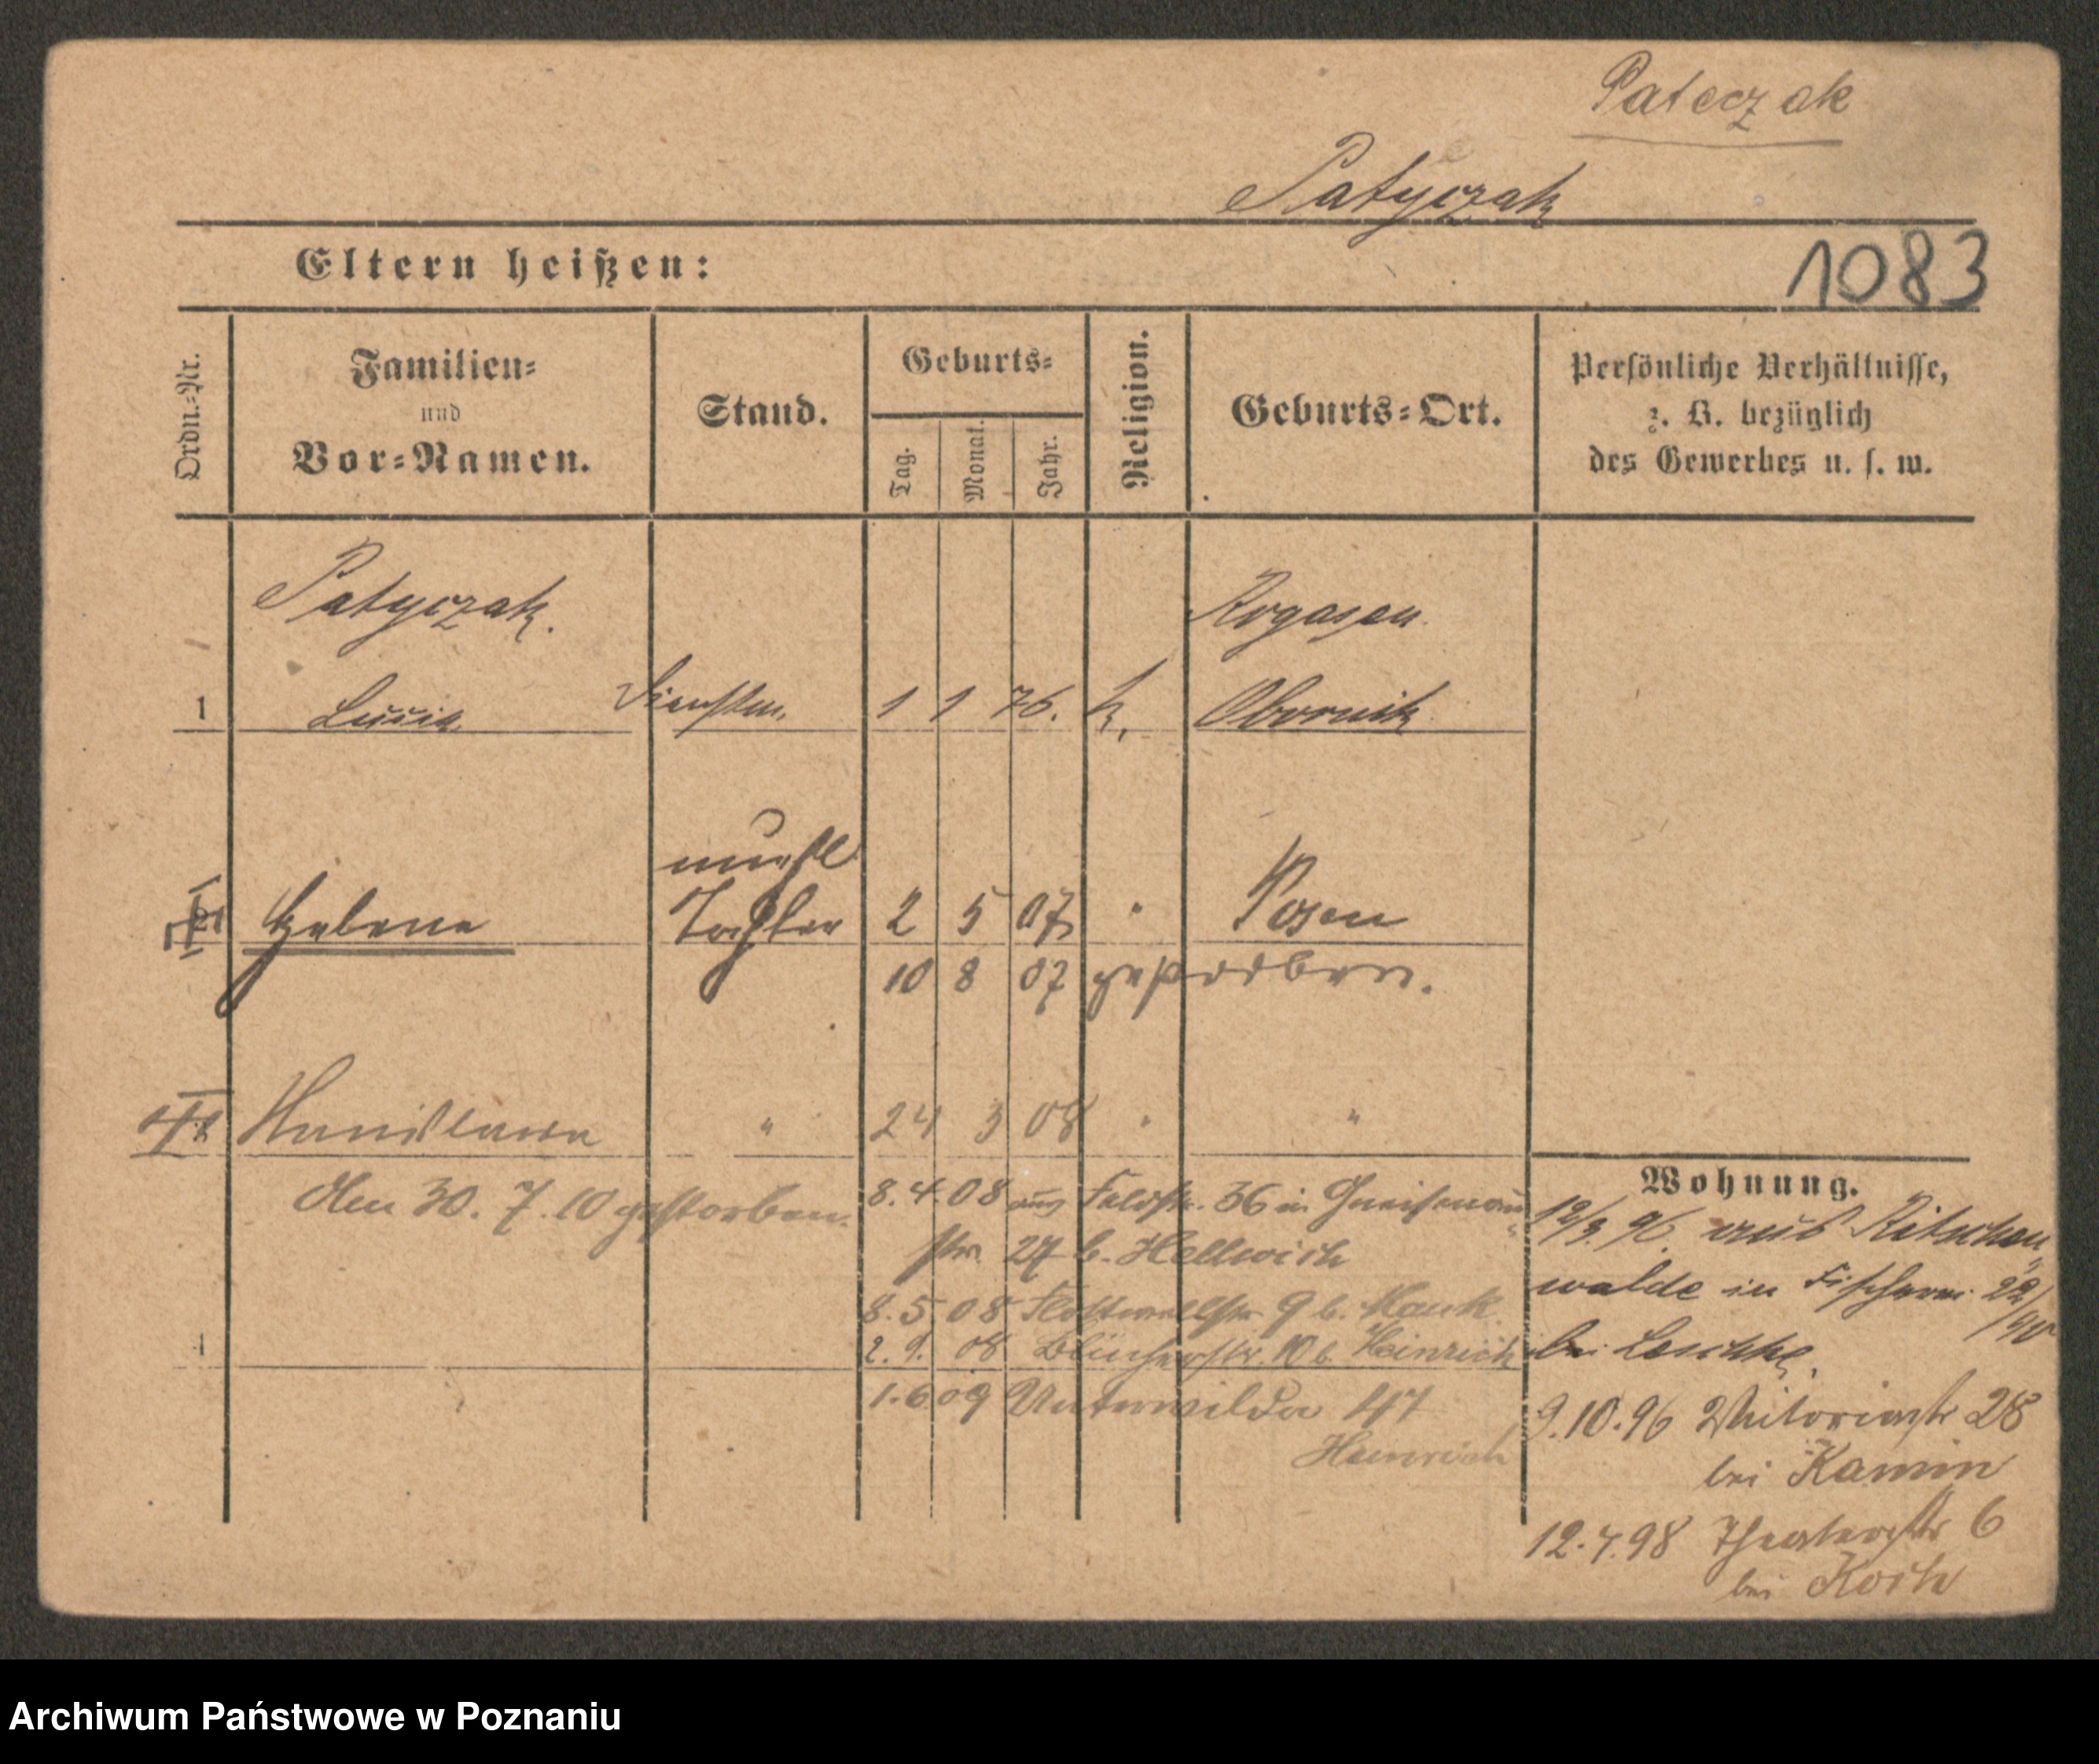 Pateczak
Patyczak
Eltern heißen:
1083
Ordn.=Nr.
Familien=
und
Vor=Namen.
Stand.
Geburts=
Tag.
Monat.
Jahr.
Religion.
Geburts=Ort.
Persönliche Verhältnisse,
z. B. bezüglich
des Gewerbes u. s. w.
Patyczak.
Rogasen
1 Lucia Dienstm. 1 1 76. k. Obornik
unehl
Helene Tochter 2 5 07 " Posen
10 8 07 gestorben.
" 24 3 08 " "
Wohnung.
den 30. 7. 10 gestorben.
8. 4. 08 aus Feldstr. 36 in Gneisenau
str. 27 b. Hellwich
8. 5 08 Flottwellstr 9 b. Mank
1
2. 9. 08 Blücherstr. 10 b. Heinrich
1. 6 09 Unterwilda 47
Heinrich
12/3. 96. aus Ritschen
walde in Fischerei 22/
bei
9. 10. 96 Viktoriastr 28
bei Kamin
12. 4. 98 Theaterstr 6
bei Koch
Archiwum Państwowe w Poznaniu